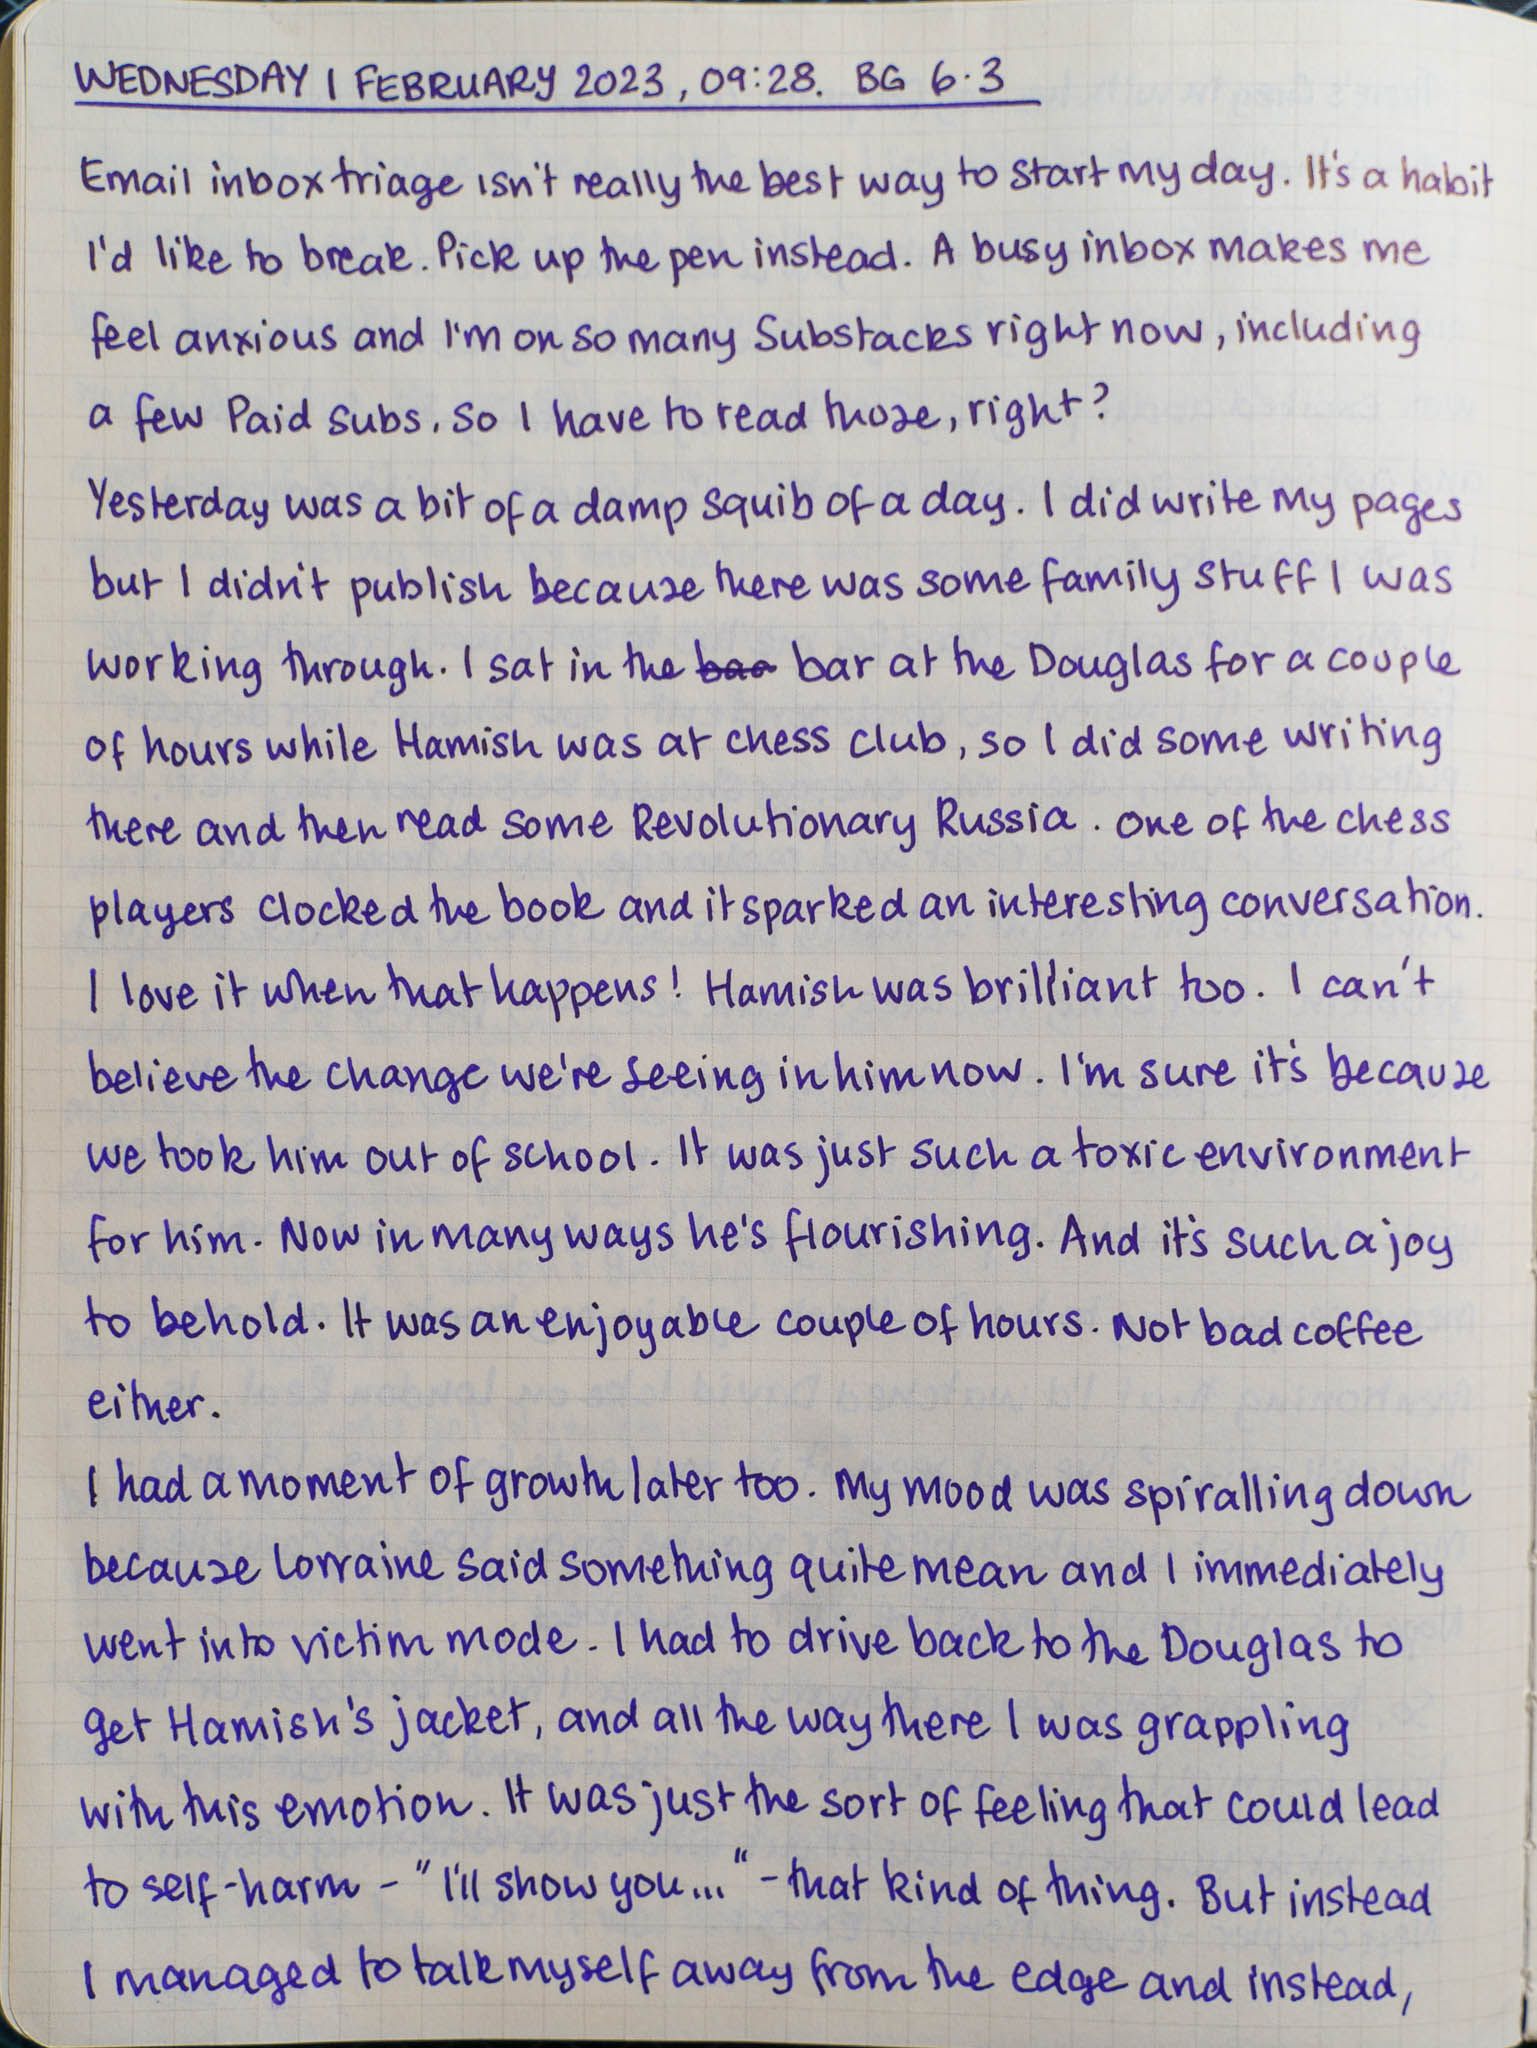 WEDNESDAY 1 FEBRUARY 2023, 09:28. BG 6.3
Email inbox triage isn't really the best way to start my day. It's a habit
I'd like to break. Pick up the pen instead. A busy inbox makes me
feel anxious and I'm on so many Substacks right now, including
a few Paid subs. So I have to read those, right?
Yesterday was a bit of a damp squib of a day. I did write my pages
but I didn't publish because there was some family stuff I was
working through. I sat in the baa bar at the Douglas for a couple
of hours while Hamish was at chess club, so I did some writing
there and then read some Revolutionary Russia. One of the chess
players clocked the book and it sparked an interesting conversation.
I love it when that happens! Hamish was brilliant too. I can't
believe the change we're seeing in him now. I'm sure it's because
we took him out of school. It was just such a toxic environment
for him. Now in many ways he's flourishing. And it's such a joy
to behold. It was an enjoyable couple of hours. Not bad coffee
either.
I had a moment of growth later too. My mood was spiralling down
because Lorraine said something quite mean and I immediately
went into victim mode. I had to drive back to the Douglas to
get Hamish's jacket, and all the way there I was grappling
with this emotion. It was just the sort of feeling that could lead
to self-harm - "I'll show you..." - that kind of thing. But instead
I managed to talk myself away from the edge and instead,